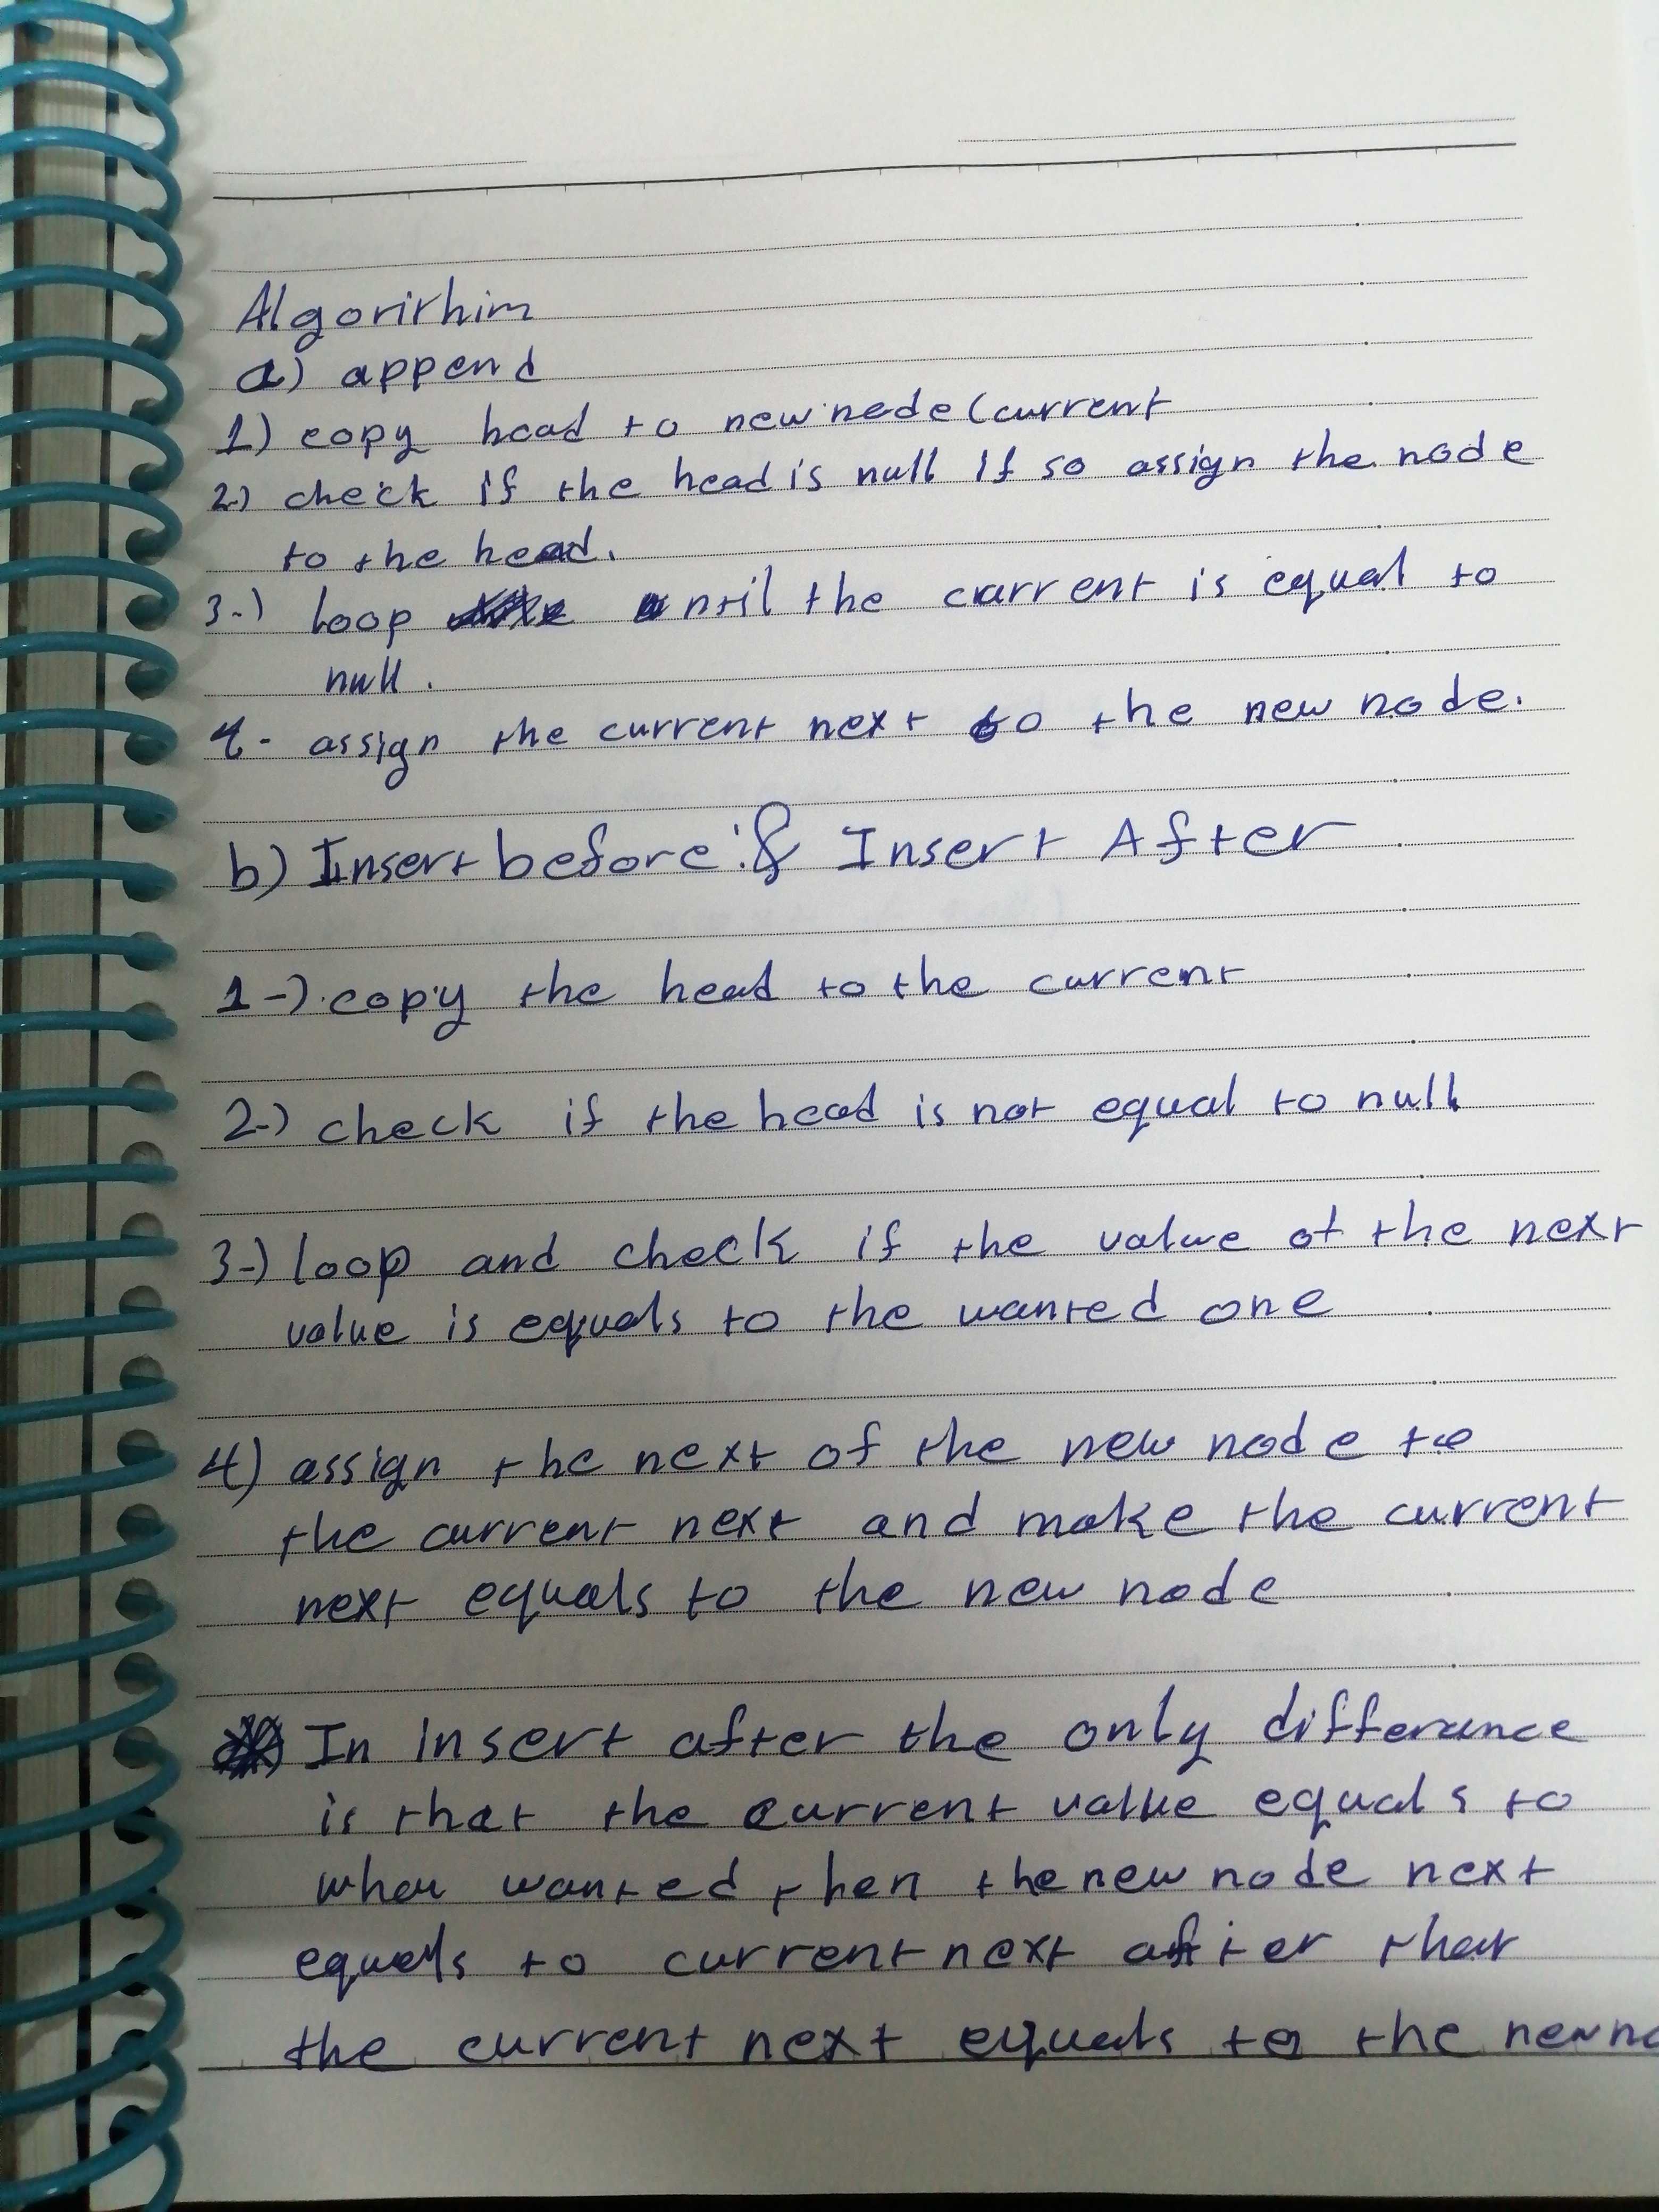 Algorithim
a) append
1) copy head to new node (current
2-) check if the head is null if so assign the node
to the head.
3-) loop until the current is equal to
null.
4- assign the current next to the new node.
b) Insert before & Insert After
1-) copy the head to the current
2-) check if the head is not equal to null
3-) loop and check if the value of the next
value is equals to the wanted one
4) assign the next of the new node to
the current next and make the current
next equals to the new node
In Insert after the only difference
is that the current value equals to
what wanted then the new node next
equals to current next after that
the current next equals to the new no